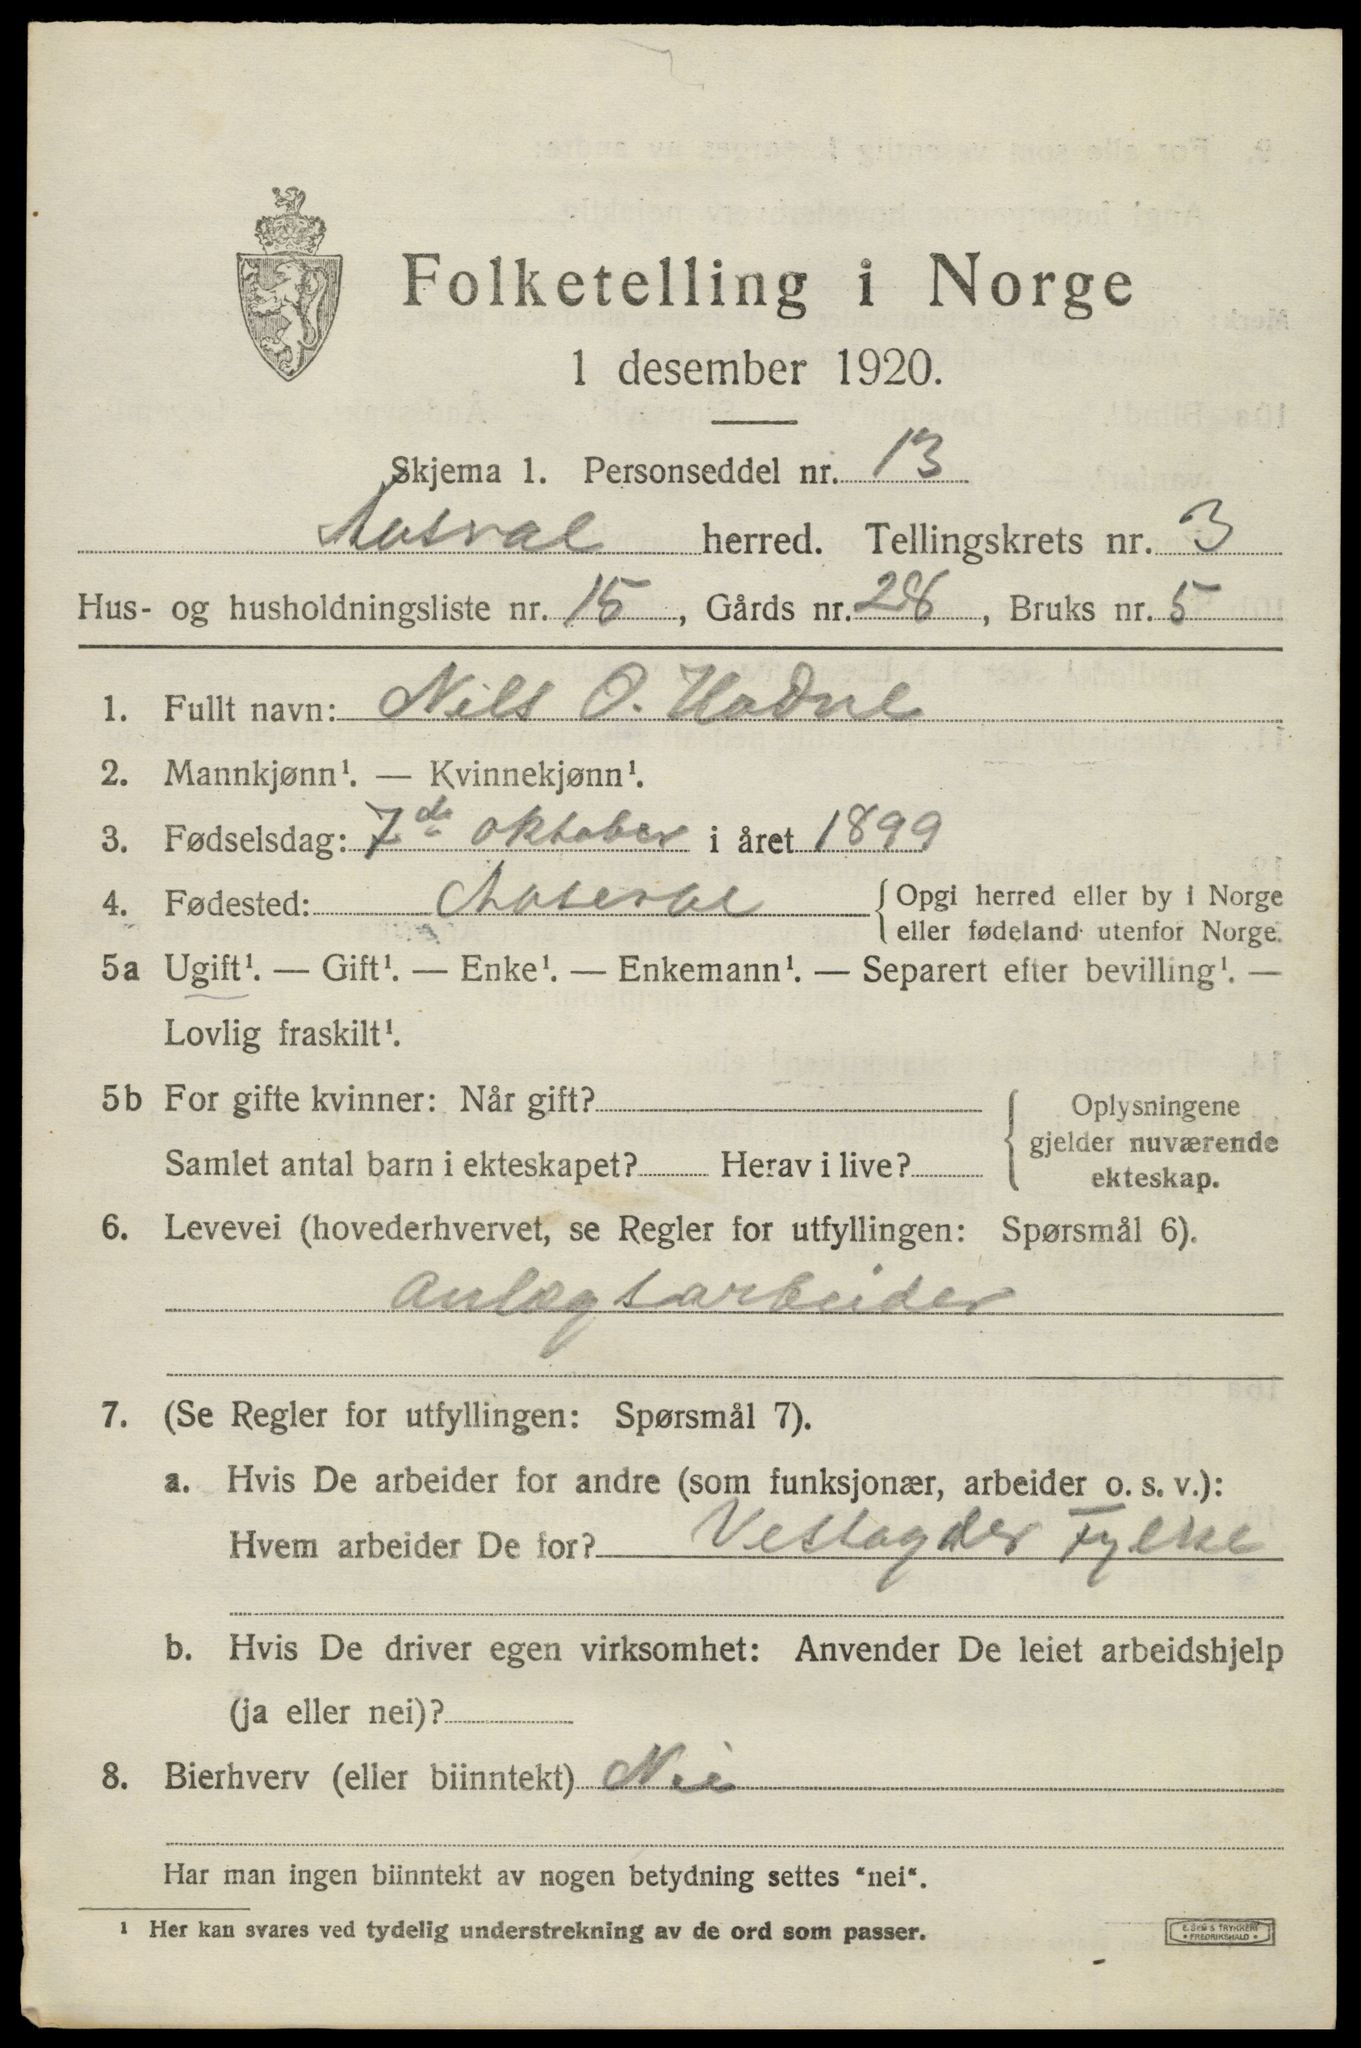 Folketelling i Norge
1 desember 1920.
Skjema 1. Personseddel nr. 13
herred. Tellingskrets nr. 3
Hus- og husholdningsliste nr. 15, Gårds nr. 28, Bruks nr. 5
1. Fullt navn: Nils O. Hadne
2. Mannkjønn¹. — Kvinnekjønn¹.
3. Fødselsdag: 7de oktober i året 1899
4. Fødested: Aaseral { Opgi herred eller by i Norge
eller fødeland utenfor Norge.
5a Ugift¹. — Gift¹. — Enke¹. — Enkemann¹. — Separert efter bevilling¹. —
Lovlig fraskilt¹.
5b For gifte kvinner: Når gift? { Oplysningene
gjelder nuværende
Samlet antal barn i ekteskapet? Herav i live?
ekteskap.
6. Levevei (hovederhvervet, se Regler for utfyllingen: Spørsmål 6).
Anlægsarbeider
7. (Se Regler for utfyllingen: Spørsmål 7).
a. Hvis De arbeider for andre (som funksjonær, arbeider o. s. v.):
Hvem arbeider De for? Vestagder Fylke
b. Hvis De driver egen virksomhet: Anvender De leiet arbeidshjelp
(ja eller nei)?
8. Bierhverv (eller biinntekt) Nei
Har man ingen biinntekt av nogen betydning settes "nei".
¹ Her kan svares ved tydelig understrekning av de ord som passer.
E. SEM'S TRYKKERI
FREDRIKSHALD